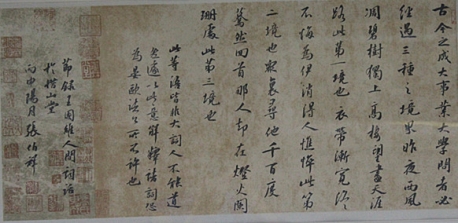 古今之成大事業大學問者必
經過三種之境界昨夜西風
凋碧樹獨上高樓望盡天涯
路此第一境也衣帶漸寬終
不悔為伊消得人憔悴此第
二境也眾裏尋他千百度
驀然回首那人卻在燈火闌
珊處此第三境也
此等語皆非大詞人不能道
然遽以此意解釋諸詞恐
為晏歐諸公所不許也
節錄王國維人間詞話
於山堂
丙申陽月張